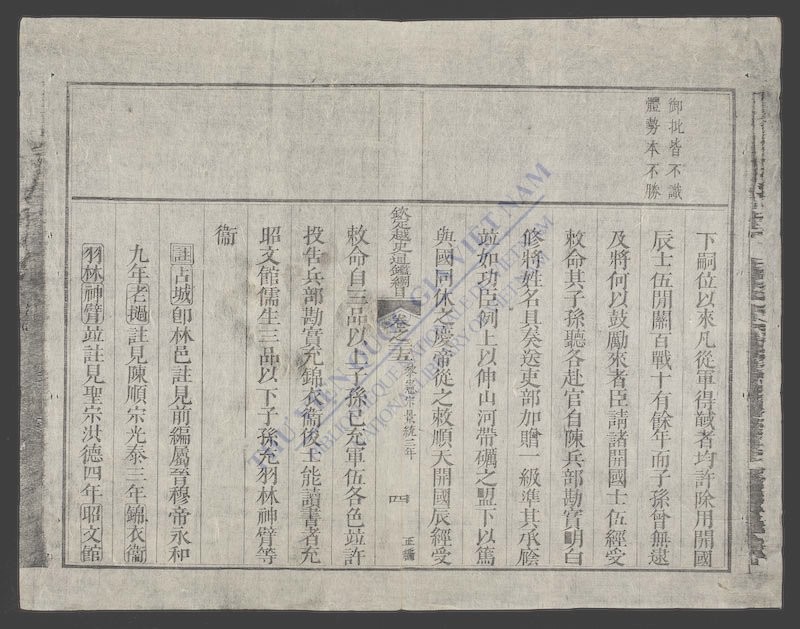 御批皆不識
體勢本不勝
下嗣位以來凡從軍得馘者均許除用開國
辰士伍開關百戰十有餘年而子孫曾無逮
及將何以鼓勵來者臣請諸開國士伍經受
敕命其子孫聽各赴官自陳兵部勘實明白
修將姓名具奏送吏部加贈一級準其承廕
竝如功臣例上以伸山河帶礪之盟下以篤
與國同休之慶帝從之敕順天開國辰經受
欽定越史通鑑綱目 卷之二十五 黎憲宗景統三年 四 正編
敕命自三品以上子孫已充軍伍各色竝許
投告兵部勘實充錦衣衞俊士能讀書者充
昭文館儒生三品以下子孫充羽林神臂等
衞
註 占城 卽林邑註見前編屬晉穆帝永和
九年 老撾 註見陳順宗光泰三年 錦衣衞
羽林 神臂 竝註見聖宗洪德四年 昭文館
THƯ VIỆN QUỐC GIA VIỆT NAM
BIBLIOTHEQUE NATIONALE DU VIETNAM
NATIONAL LIBRARY OF VIETNAM